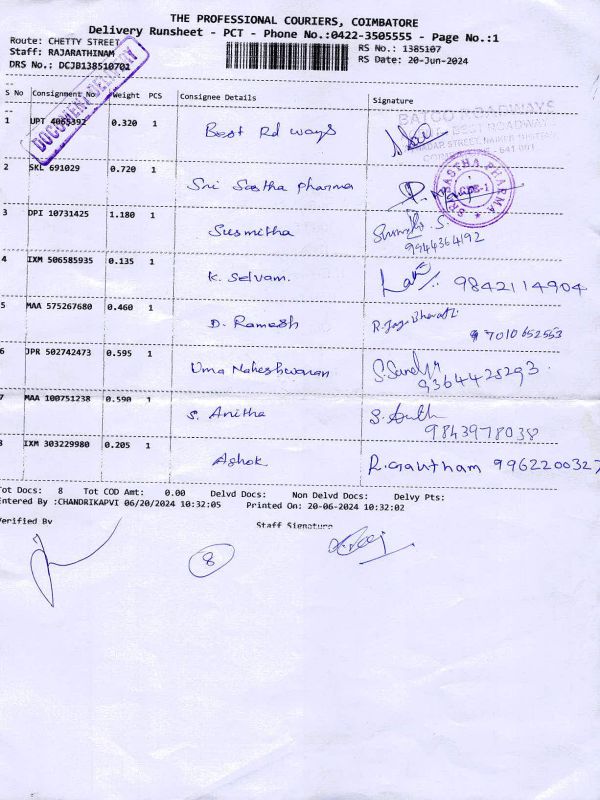 THE PROFESSIONAL COURIERS, COIMBATORE
Delivery Runsheet - PCT - Phone No.:0422-3505555 - Page No.:1
Route: CHETTY STREET
RS No.: 1385107
Staff: RAJARATHINAM
RS Date: 20-Jun-2024
DRS No.: DCJB138510701
DOCUMENT
S No Consignment No Weight PCS Consignee Details Signature
BATCO ROADWAYS
BEST ROADWAYS
1 UPT 4065392 0.320 1 Best Rd ways
- 641 001
2 SKL 691029 0.720 1 Sri Sastha Pharma
SRI SASTHA PHARMA
3 DPI 10731425 1.180 1 Susmitha
9944364192
4 IXM 506585935 0.135 1 K. Selvam. 9842114904
5 MAA 575267680 0.460 1 D. Ramesh R. Jaya Bharathi
7010652553
6 JPR 502742473 0.595 1 Uma Maheshwaran
9364425293
7 MAA 100751238 0.590 1 S. Anitha
9843978038
8 IXM 303229980 0.205 1 Ashok R. Gautham 9962200327
Tot Docs: 8 Tot COD Amt: 0.00 Delvd Docs: Non Delvd Docs: Delvy Pts:
Entered By :CHANDRIKAPVI 06/20/2024 10:32:05 Printed On: 20-06-2024 10:32:02
Verified By Staff Signature
8